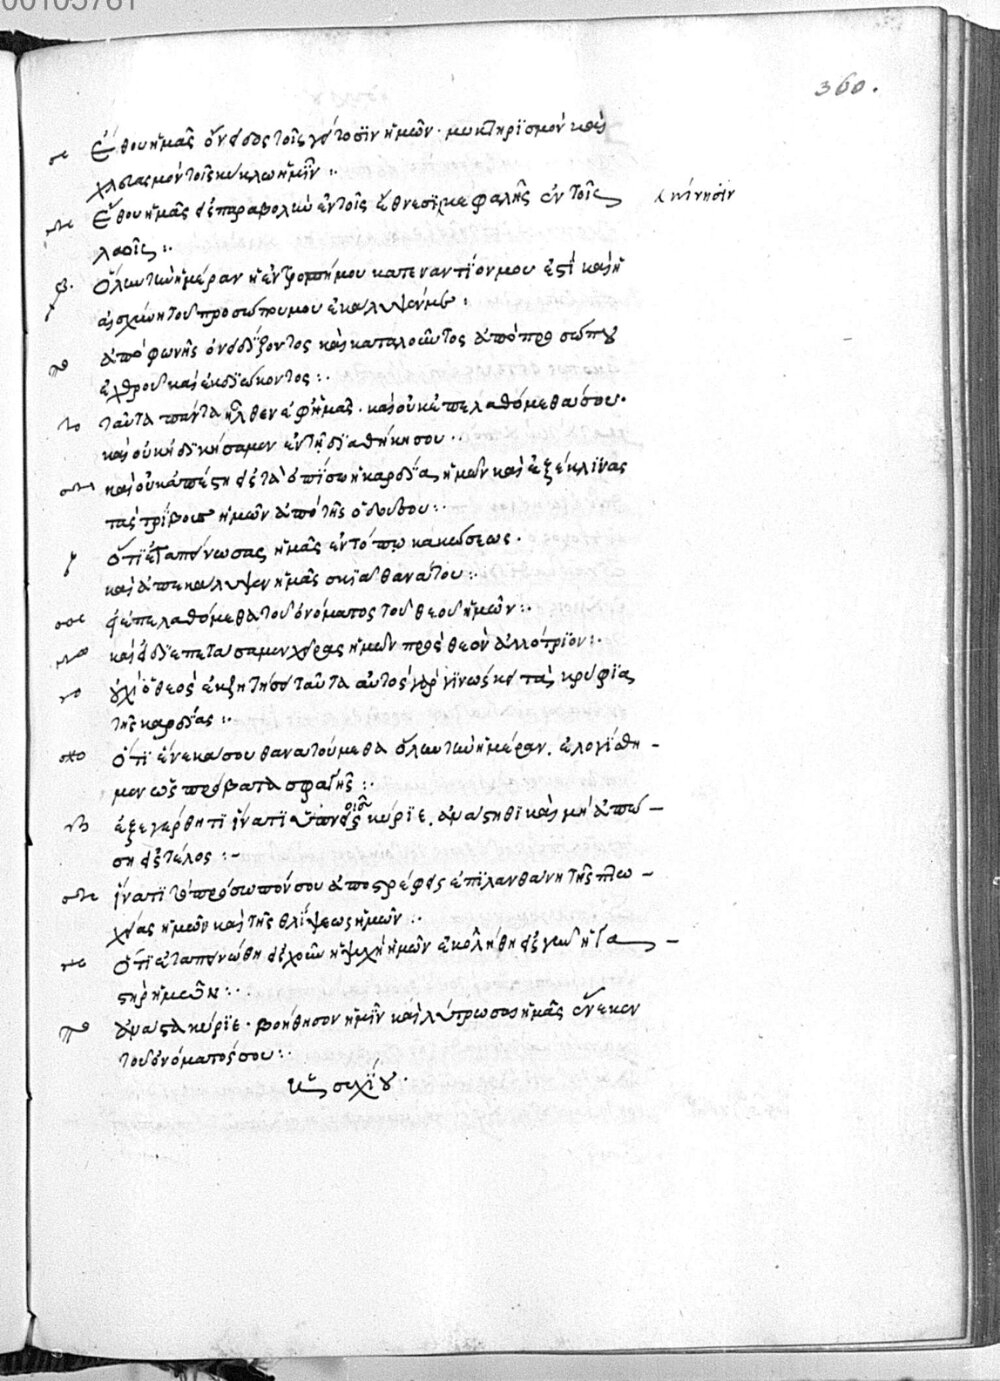 00105781
360.
Ἔθου ἡμᾶς ὄνειδος τοῖς γείτοσϊν ἡμῶν· μυκτηρϊσμὸν καὶ
χλευασμὸν τοῖς κύκλω ἡμῖν :.
Ἔθου ἡμᾶς εἰς παραβολὴν ἐν τοῖς ἔθνεσϊ κεφαλῆς ἐν τοῖς κίνησϊν
λαοῖς :.
Ὅλην τὴν ἡμέραν ἡ ἐντροπή μου κατεναντίον μου ἐστὶ καὶ ἡ
αἰσχύνη τοῦ προσώπου μου ἐκάλυψέν με :
ἀπὸ φωνῆς ὀνειδίζοντος καὶ καταλαλοῦντος ἀπὸ προσώπου
ἐχθροῦ καὶ ἐκδϊώκοντος :.
ταῦτα πάντα ἦλθεν ἐφ' ἡμᾶς· καὶ οὐκ ἐπελαθόμεθά σου·
καὶ οὐκ ἠδϊκήσαμεν ἐν τῇ δϊαθήκη σου·.
καὶ οὐκ ἀπέστη εἰς τὰ ὀπίσω ἡ καρδία ἡμῶν καὶ ἐξέκλϊνας
τὰς τρίβους ἡμῶν ἀπὸ τῆς ὁδοῦ σου :.
ὅτϊ ἐταπείνωσας ἡμᾶς ἐν τόπω κακώσεως·
καὶ ἀπεκάλυψεν ἡμᾶς σκϊὰ θανάτου :.
εἰ ἐπελαθόμεθα τοῦ ὀνόματος τοῦ θεοῦ ἡμῶν :.
καὶ εἰ δϊεπετάσαμεν χεῖρας ἡμῶν πρὸς θεὸν ἀλλότρϊον :.
οὐχὶ ὁ θεὸς ἐκζητήσει ταῦτα αὐτὸς γὰρ γϊνώσκει τὰ κρύφϊα
τῆς καρδίας :.
ὅτϊ ἕνεκα σου θανατούμεθα ὅλην τὴν ἡμέραν. ἐλογίσθη-
μεν ὡς πρόβατα σφαγῆς :.
ἐξεγέρθητι ἵνατϊ ὑπνοῖς κύρϊε. ἀνάστηθϊ καὶ μὴ ἀπώ-
ση εἰς τέλος :-
ἵνατϊ τὸ πρόσωπόν σου ἀποστρέφεις ἐπϊλανθάνη τῆς πτω-
χείας ἡμῶν καὶ τῆς θλίψεως ἡμῶν :.
ὅτϊ ἐταπεινώθη εἰς χοῦν ἡ ψυχὴ ἡμῶν ἐκολλήθη εἰς γῆν ἡ γα-
στὴρ ἡμῶν :.
ἀνάστα κύρϊε· βοήθησον ἡμῖν καὶ λύτρωσαι ἡμᾶς ἕνεκεν
τοῦ ὀνόματός σου :.